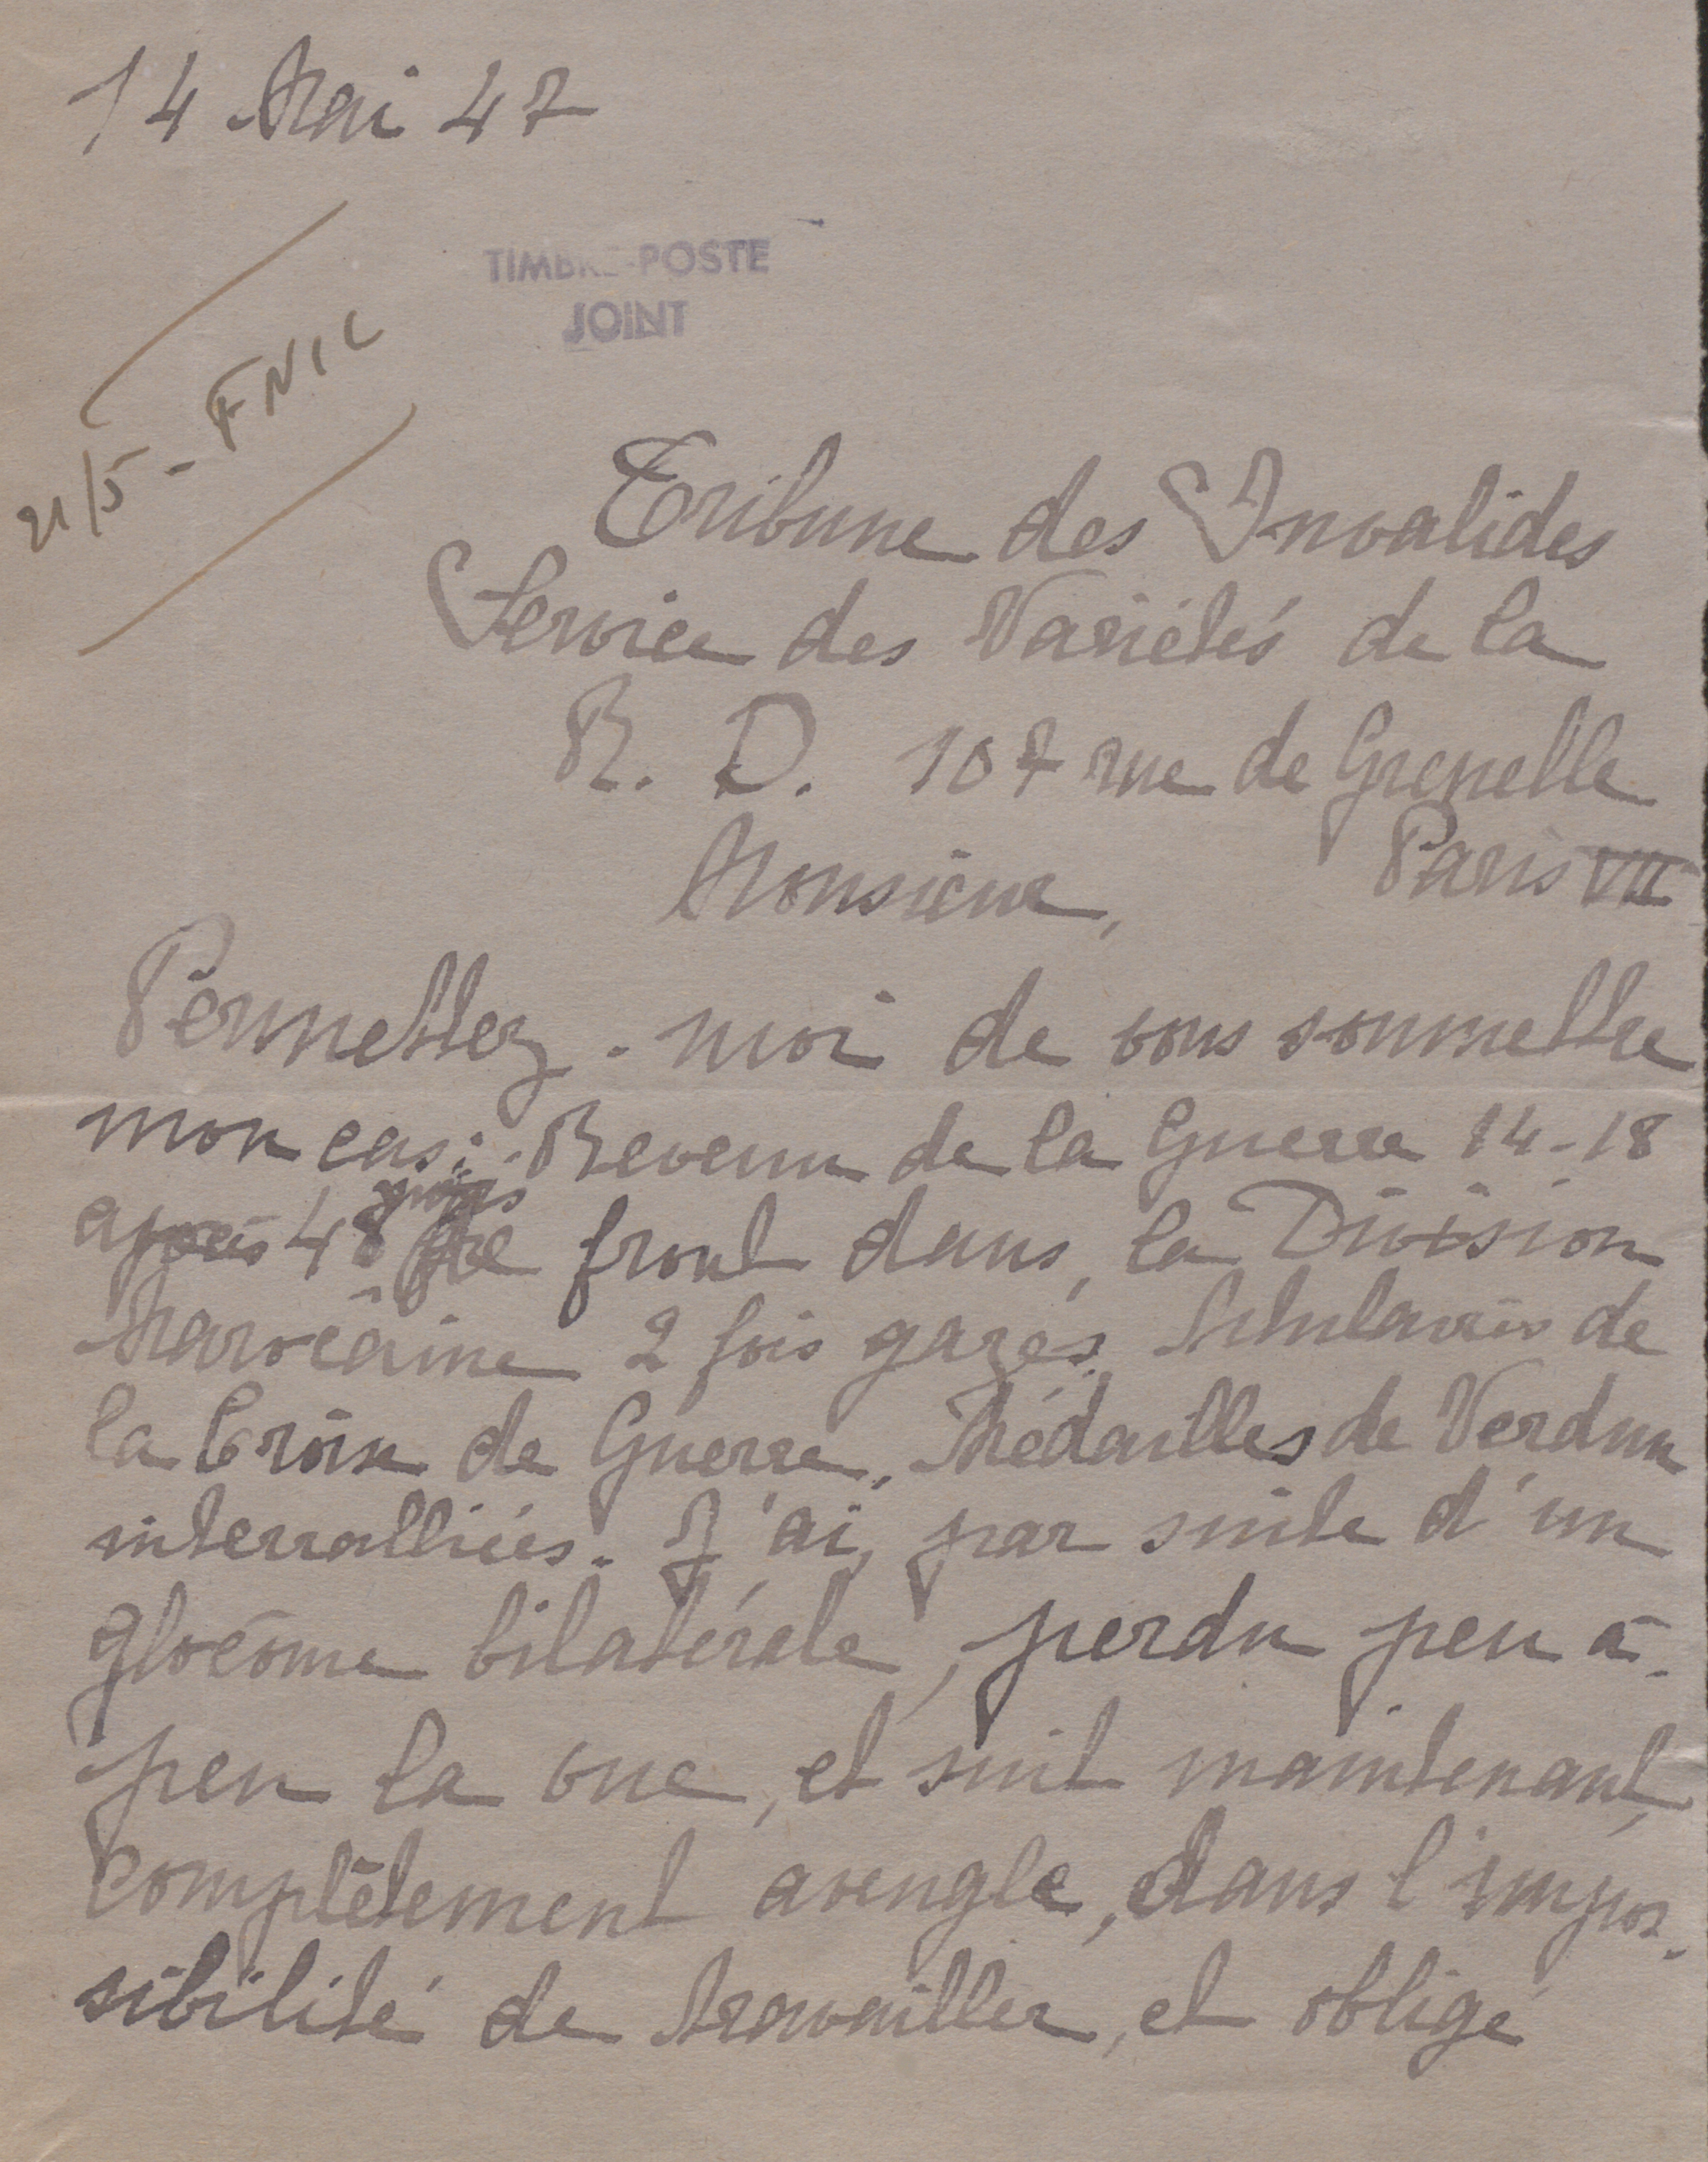 14 Mai 47
TIMBRE-POSTE
JOINT
21/5 - FNIC
Tribune des Invalides
Service des Variétés de la
R. D. 107 rue de Grenelle
Paris VII
Monsieur,
Permettez-moi de vous soumettre
mon cas : Revenu de la Guerre 14-18
après 48 mois de front dans, la Division
Marocaine 2 fois gazés, titulaires de
la Croix de Guerre, Médailles de Verdun
interralliées. J'ai, par suite d'un
glocôme bilatérale, perdu peu à
peu la vue, et suit maintenant,
complètement aveugle, dans l'impos-
sibilité de travailler, et obligé